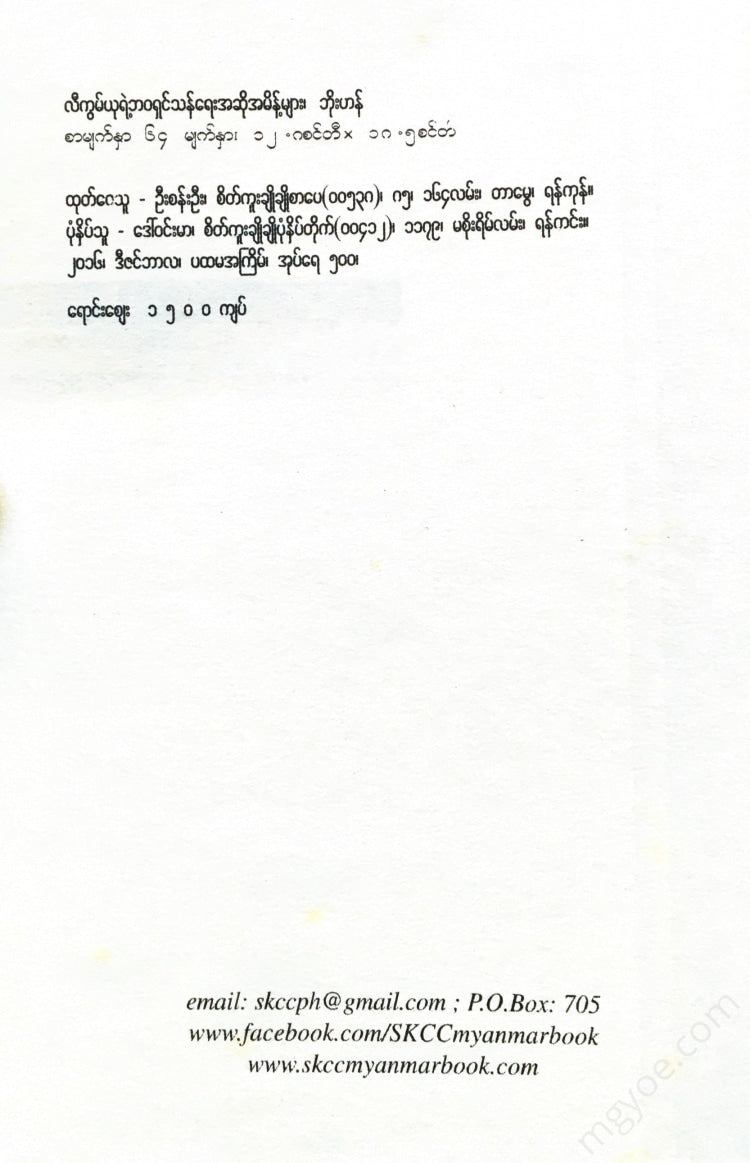 လီကွမ်ယုရဲ့ဘဝရှင်သန်ရေးအဆိုအမိန့်များ၊ ဘိုးဟန်
စာမျက်နှာ ၆၄ မျက်နှာ၊ ၁၂.၈စင်တီ× ၁၈.၅စင်တီ
ထုတ်ဝေသူ - ဦးစန်းဦး၊ စိတ်ကူးချိုချိုစာပေ(၀၀၅၃၈)၊ ၈၅၊ ၁၆၄လမ်း၊ တာမွေ၊ ရန်ကုန်။
ပုံနှိပ်သူ - ဒေါ်ဝင်းမာ၊ စိတ်ကူးချိုချိုပုံနှိပ်တိုက်(၀၀၄၁၂)၊ ၁၁၇၉၊ မစိုးရိမ်လမ်း၊ ရန်ကင်း။
၂၀၁၆၊ ဒီဇင်ဘာလ၊ ပထမအကြိမ်၊ အုပ်ရေ ၅၀၀၊
ရောင်းဈေး ၁ ၅ ၀ ၀ ကျပ်
email: skccph@gmail.com ; P.O.Box: 705
www.facebook.com/SKCCmyanmarbook
www.skccmyanmarbook.com
mgyoe.com